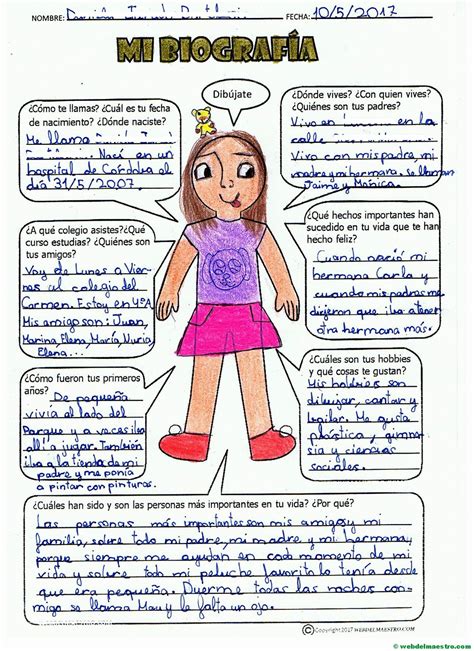 NOMBRE: FECHA: 10/5/2017
MI BIOGRAFÍA
Dibújate
¿Cómo te llamas? ¿Cuál es tu fecha
de nacimiento? ¿Dónde naciste?
Me llama
Nací en un
hospital de Córdoba el
día 31/5/2007.
¿Dónde vives? ¿Con quien vives?
¿Quiénes son tus padres?
Vivo en en la
calle
Vivo con mis padre, mi
madre y mi hermana. se llaman
Jaime y Mónica.
¿A qué colegio asistes?¿Qué
curso estudias? ¿Quiénes son
tus amigos?
Voy de Lunes a Vier-
nes al colegio del
Carmen. Estoy en 4ºA
Mis amigo son: Juan,
Marina, Elena, María, Nuria,
Elena...
¿Qué hechos importantes han
sucedido en tu vida que te han
hecho feliz?
Cuando nació mi
hermana Carla y
cuando mis padres me
dijeron que iba a tener
otra hermana más.
¿Cómo fueron tus primeros
años?
De pequeña
vivía al lado del
Parque y a veces iba
allí a jugar. También
iba a la tienda de mi
padre y me ponía
a pintar con pinturas.
¿Cuáles son tus hobbies
y qué cosas te gustan?
Mis hobbies son
dibujar, cantar y
bailar. Me gusta
plástica, gimna-
sia y ciencias
sociales.
¿Cuáles han sido y son las personas más importantes en tu vida? ¿Por qué?
Las personas más importantes son mis amigos y mi
familia, sobre todo mi padre, mi madre y mi hermana,
porque siempre me ayudan en cada momento de mi
vida y sobre todo mi peluche favorito lo tenía desde
que era pequeña. Duerme todas las noches con-
migo se llama Mau y le falta un ojo.
©Copyright 2017 WEBDELMAESTRO.COM
webdelmaestro.com